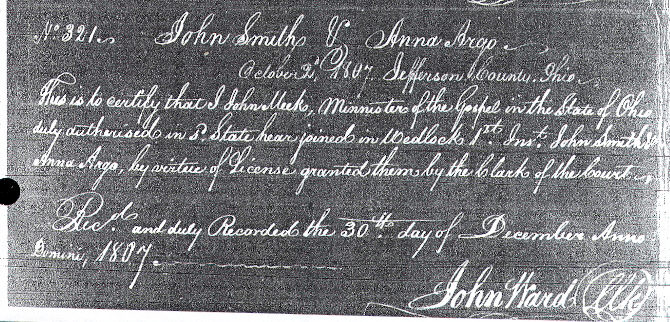 No. 321. John Smith & Anna Argo.
October 2d, 1807 Jefferson County, Ohio.
This is to certify that I John Meek, Minnister of the Gospel in the State of Ohio
duly authorised in sd. State hear joined in Wedlock 1st. Inst. John Smith &
Anna Argo, by virtue of License granted them by the Clark of the Court
Rec'd. and duly Recorded the 30th. day of December Anno
Domini, 1807.
John Ward Clk